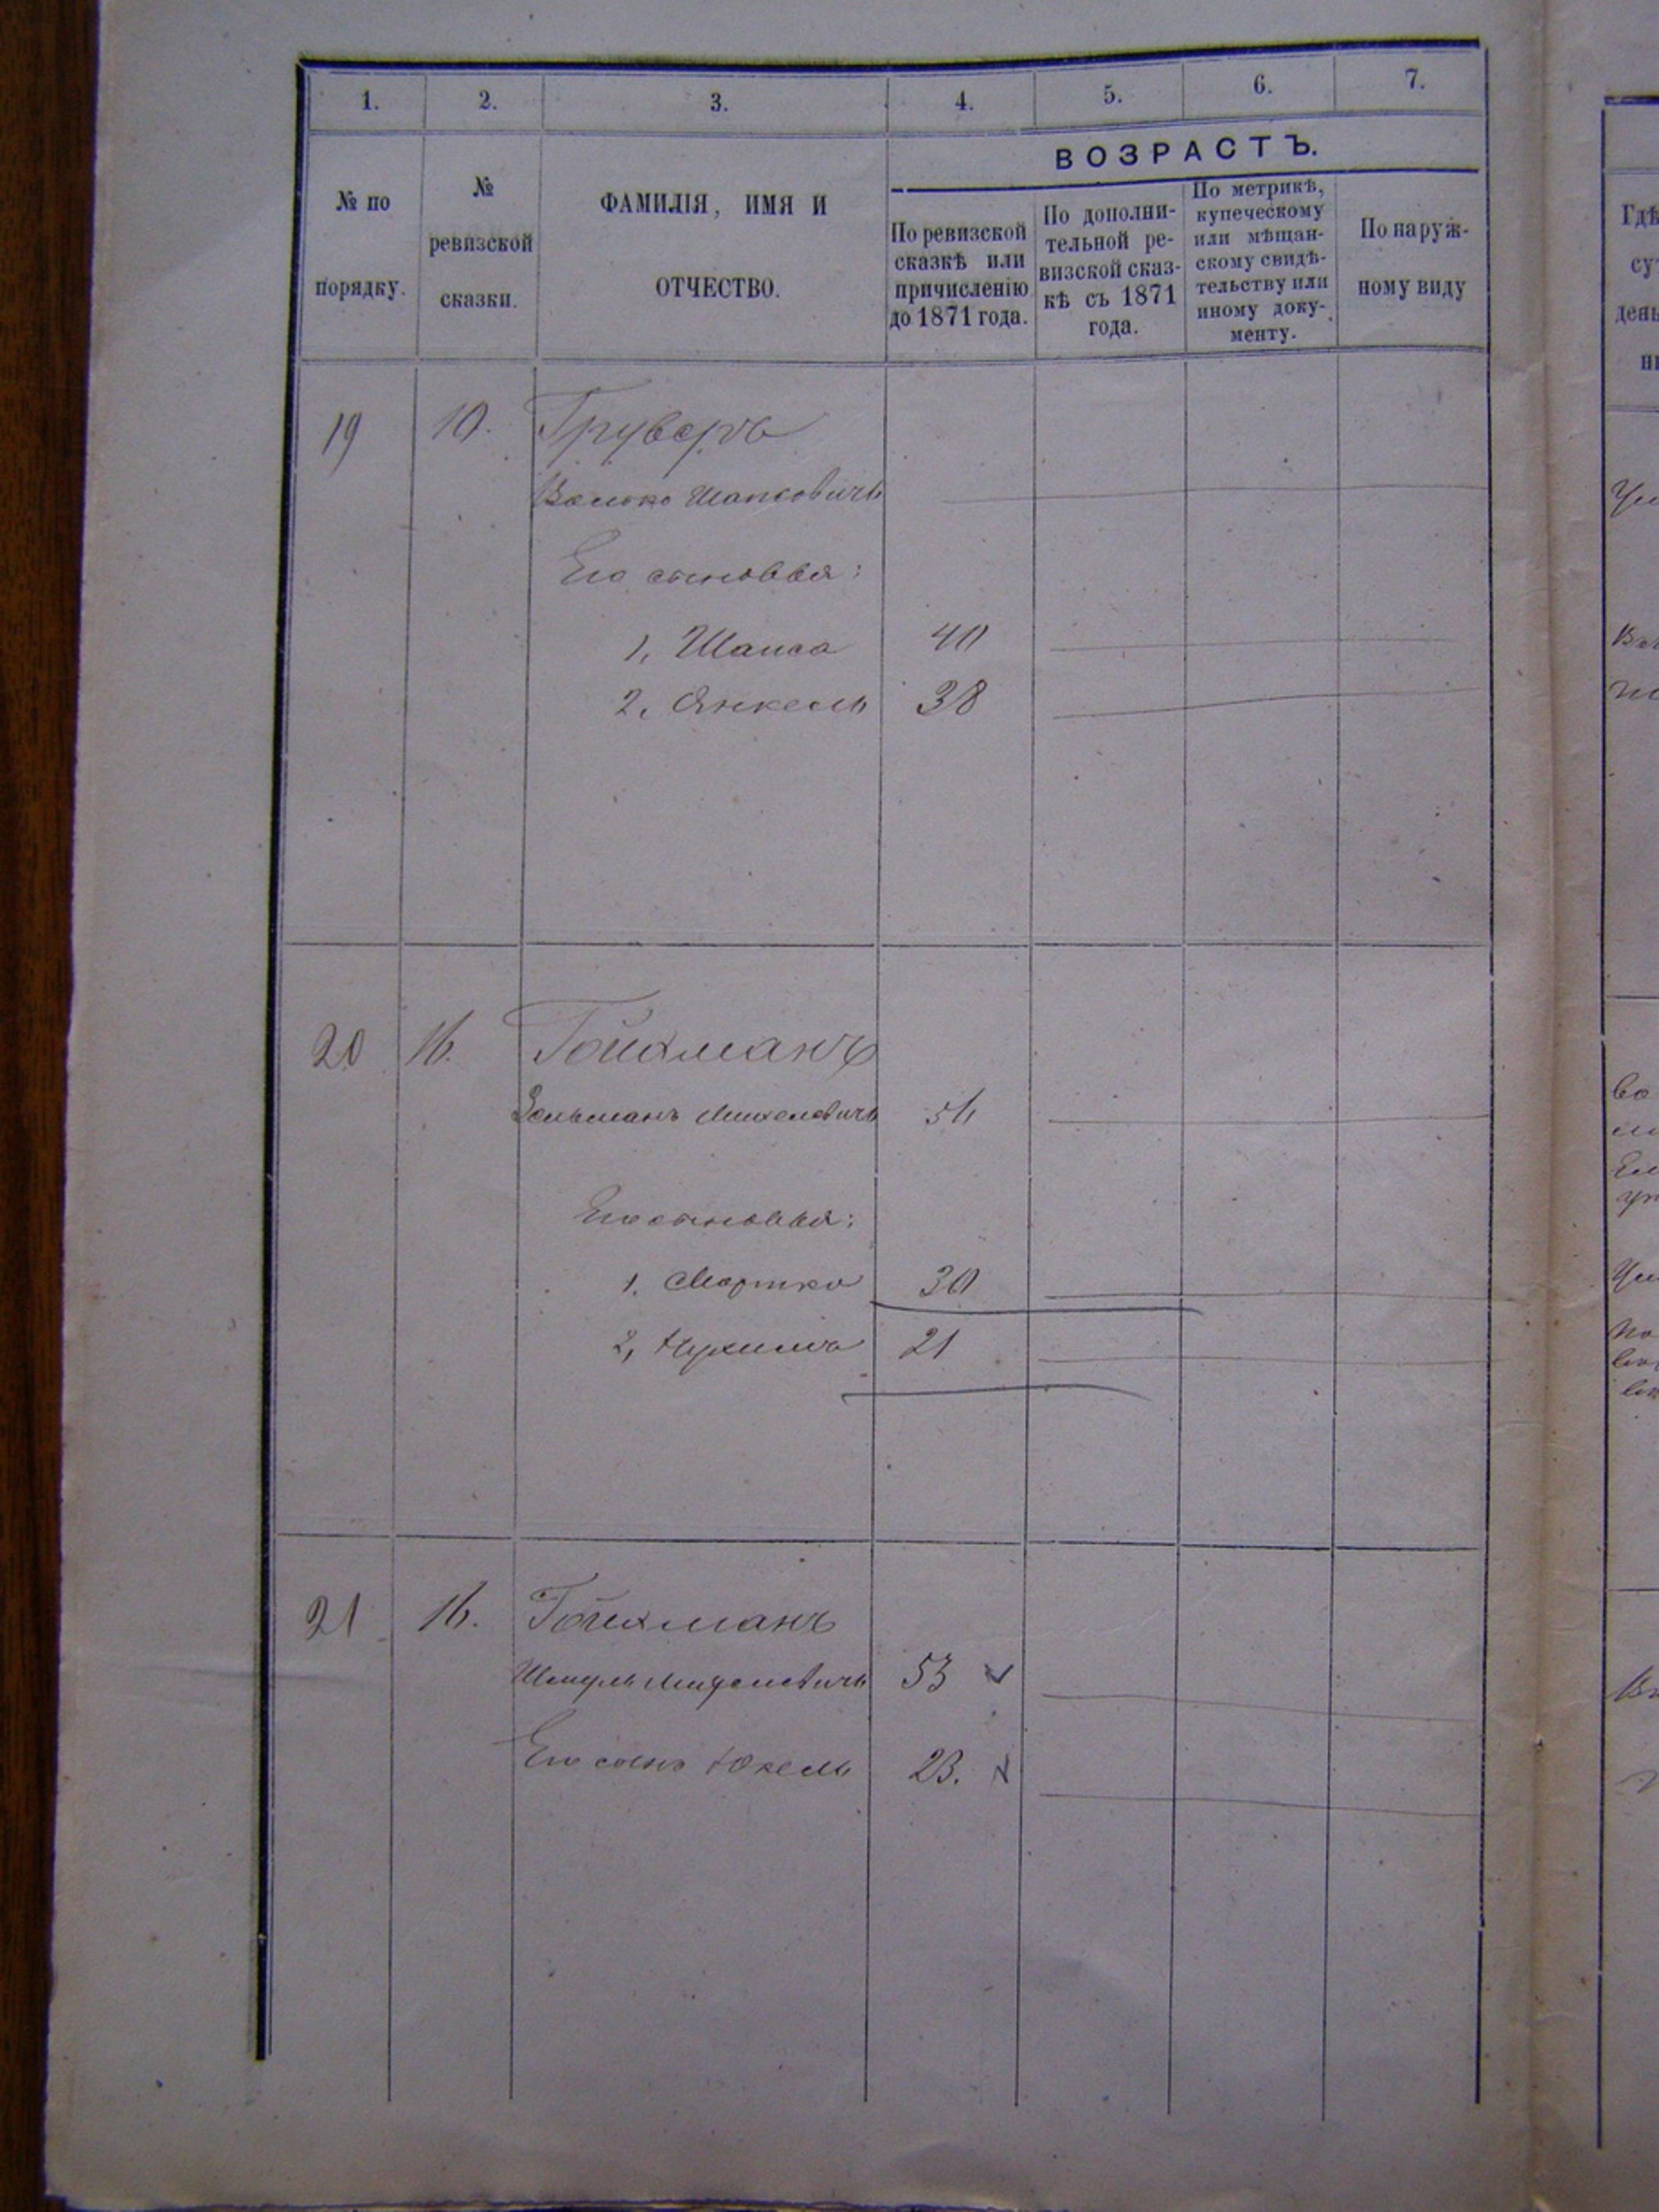 1. 2. 3. 4. 5. 6. 7.
ВОЗРАСТЪ.
№ по
порядку.
№
ревизской
сказки.
ФАМИЛІЯ, ИМЯ И
ОТЧЕСТВО.
По ревизской
сказкѣ или
причисленію
до 1871 года.
По дополни-
тельной ре-
визской сказ-
кѣ съ 1871
года.
По метрикѣ,
купеческому
или мѣщан-
скому свидѣ-
тельству или
иному доку-
менту.
По наруж-
ному виду
19 10. Груверъ
Волько Шапсовичъ
Его сыновья:
1, Шапса 40
2, Янкель 38
20 16. Гойхманъ
Зельманъ Михелевичъ 56
Его сыновья:
1. Мортко 30
2, Нухимъ 21
21 16. Гойхманъ
Шмуль Михелевичъ 53
Его сынъ Юкель 23.
Гдѣ